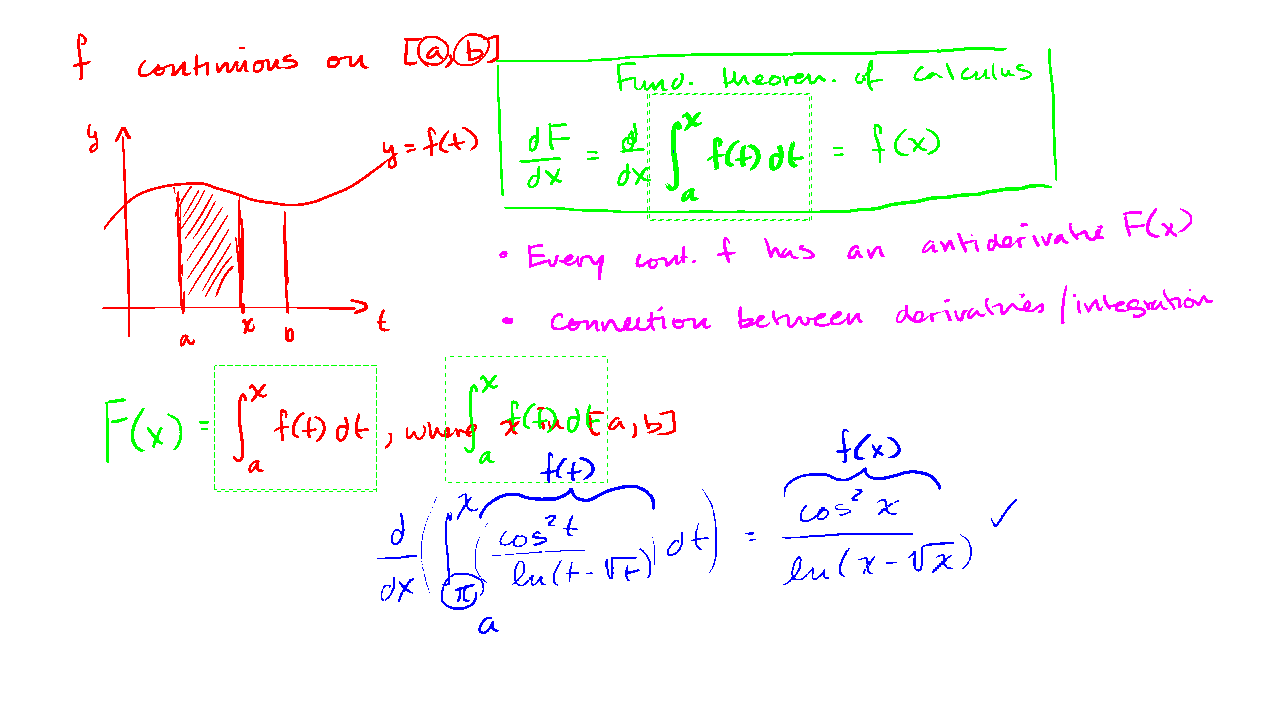 f continuous on [a,b]
Fund. theorem. of calculus
dF/dx = d/dx ∫_a^x f(t) dt = f(x)
y
y = f(t)
a x b t
• Every cont. f has an antiderivative F(x)
• Connection between derivatives/integration
F(x) = ∫_a^x f(t) dt, where x in [a,b]
∫_a^x f(t) dt
f(t) f(x)
d/dx (∫_π^x (cos² t / ln(t-√t)) dt) = cos² x / ln(x-√x) ✓
a